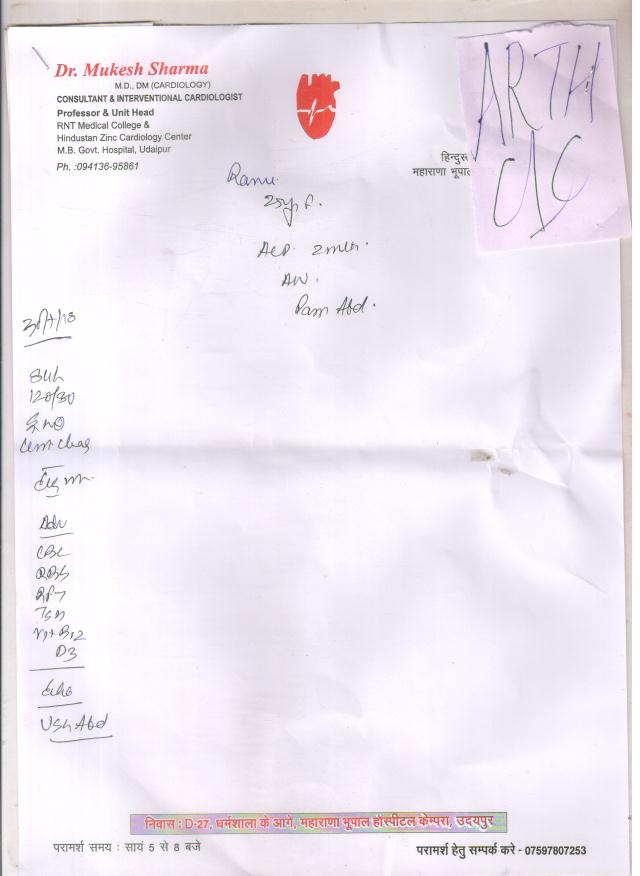 Dr. Mukesh Sharma
M.D., DM (CARDIOLOGY)
CONSULTANT & INTERVENTIONAL CARDIOLOGIST
Professor & Unit Head
RNT Medical College &
Hindustan Zinc Cardiology Center
M.B. Govt. Hospital, Udaipur
Ph. :094136-95861
ARTH
हिन्दुस
महाराणा भूपाल
Ranu
25yr F.
Pain Abd.
120/80
Adv
CBC
RBS
RFT
TSH
Vit B12
D3
Echo
USG Abd
निवास : D-27, धर्मशाला के आगे, महाराणा भूपाल होस्पीटल केम्पस, उदयपुर
परामर्श समय : सायं 5 से 8 बजे
परामर्श हेतु सम्पर्क करे - 07597807253